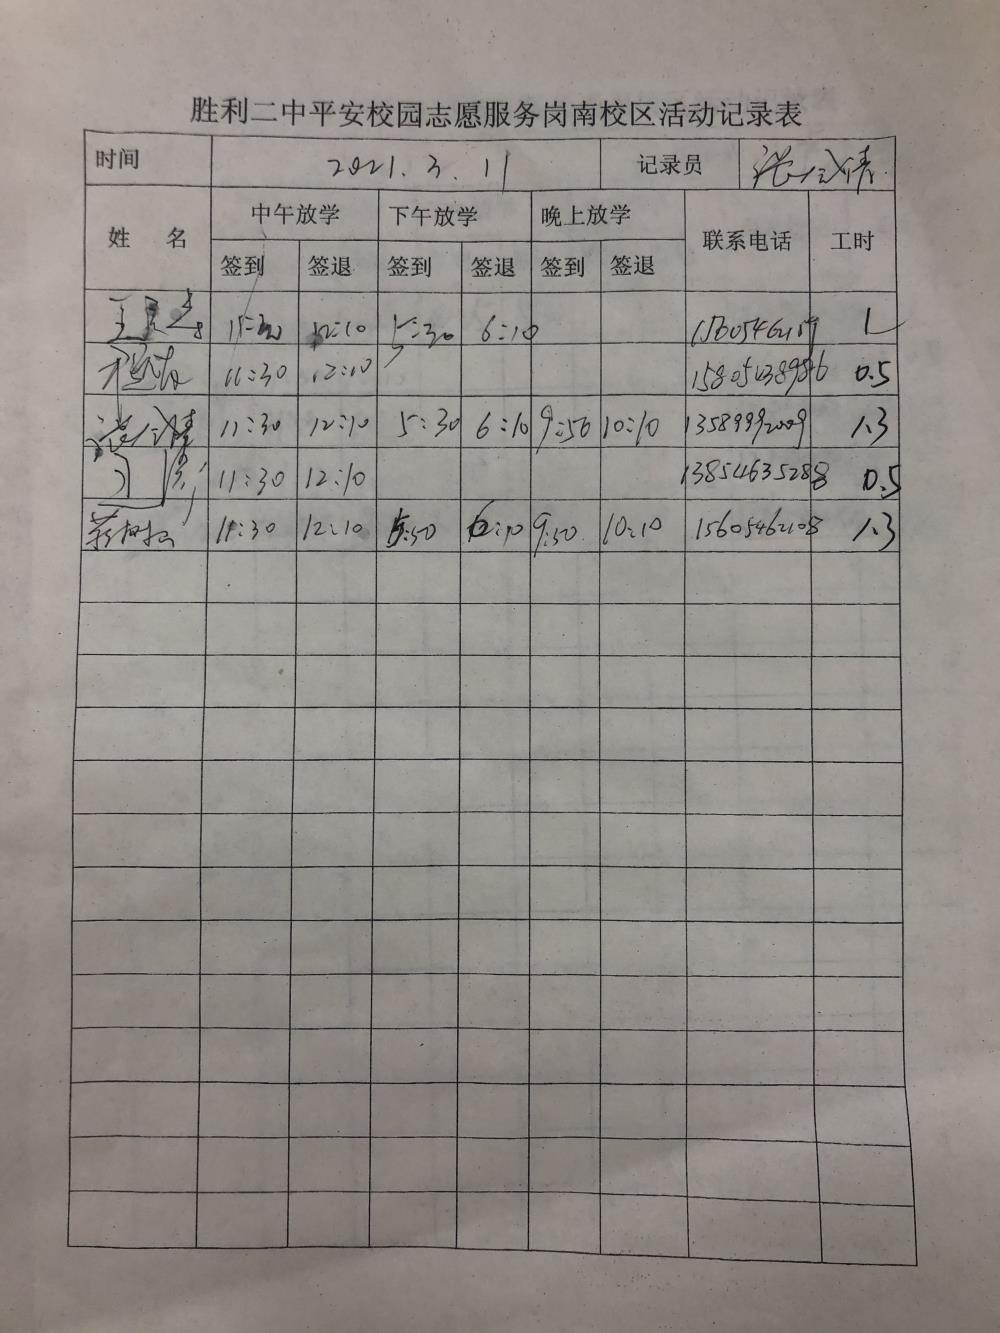 胜利二中平安校园志愿服务岗南校区活动记录表
时间 2021.3.11 记录员
姓 名 中午放学 下午放学 晚上放学 联系电话 工时
签到 签退 签到 签退 签到 签退
11:30 12:10 5:30 6:10
11:30 12:10 0.5
11:30 12:10 5:30 6:10 9:50 10:10 13589992009 1.3
11:30 12:10 13854635288 0.5
11:30 12:10 5:30 6:10 9:50 10:10 15605462108 1.3